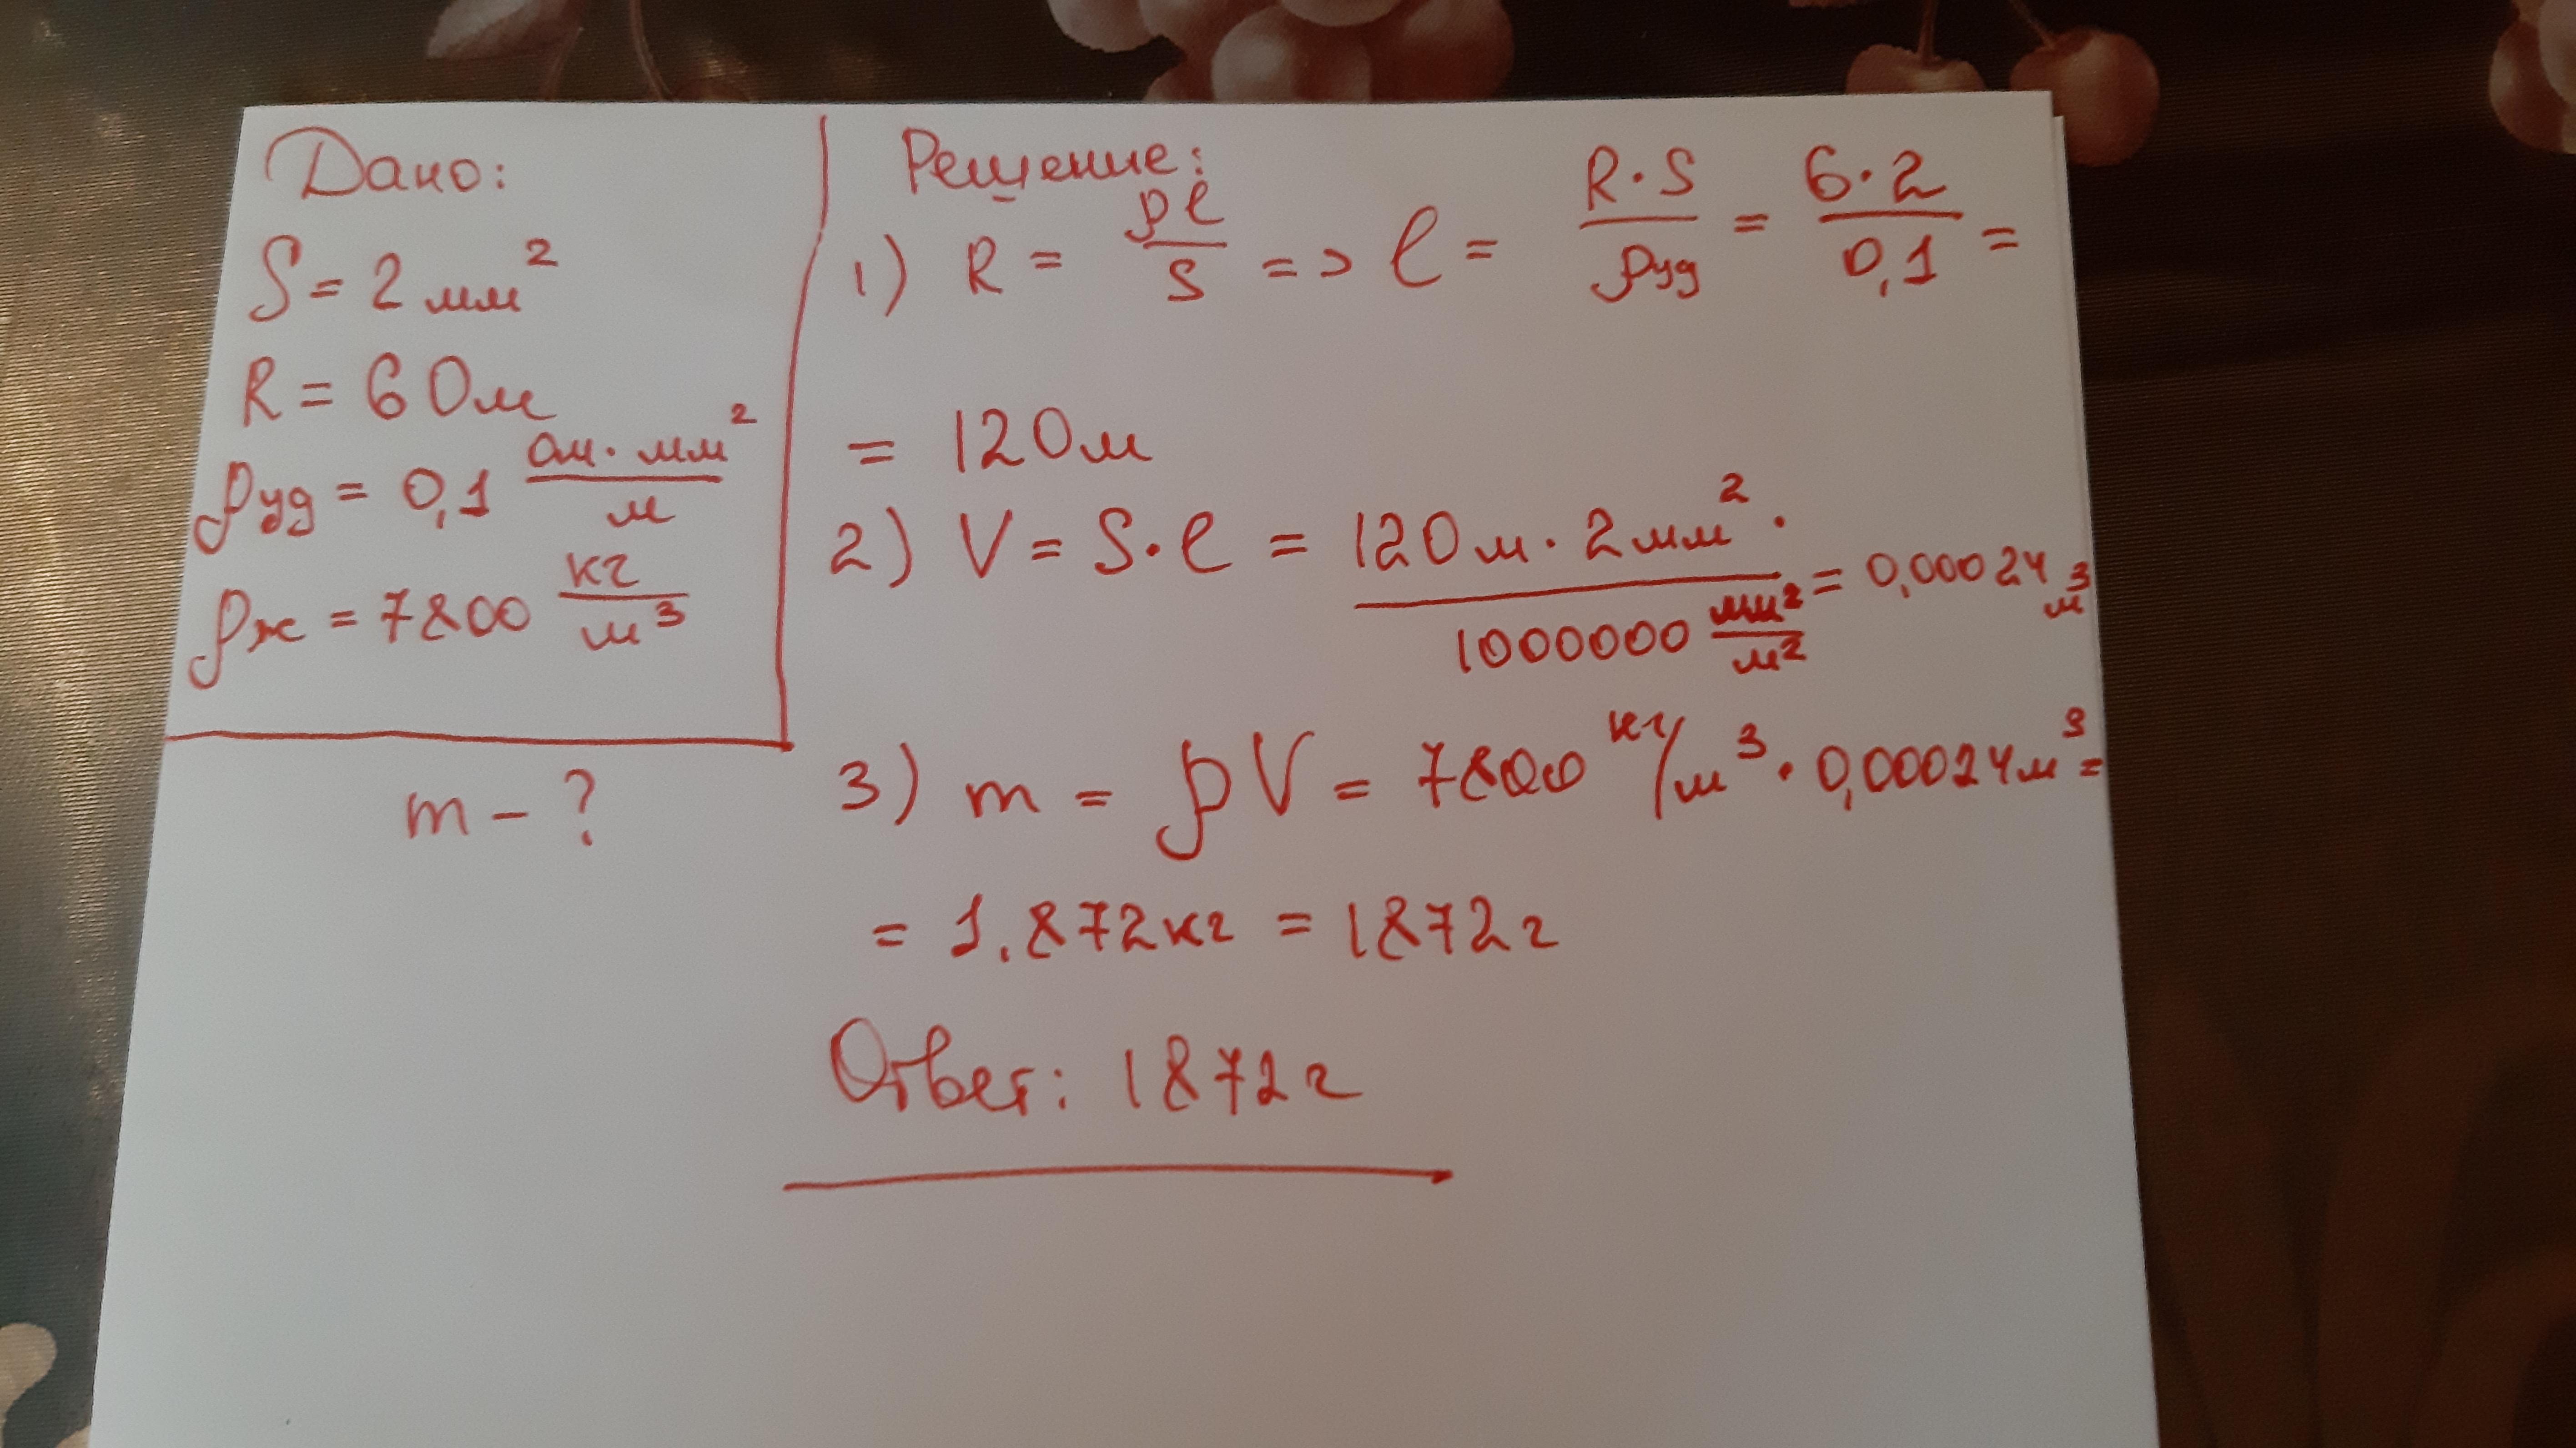 Дано:
S = 2 мм²
R = 6 Ом
ρуд = 0,1 Ом·мм²/м
ρж = 7800 кг/м³
m – ?
Решение:
1) R = ρl/S => l = R·S/ρуд = 6·2/0,1 =
= 120м
2) V = S·l = 120м·2мм²·/1000000 мм²/м² = 0,00024 м³
3) m = ρV = 7800 кг/м³ · 0,00024м³ =
= 1.872кг = 1872г
Ответ: 1872г